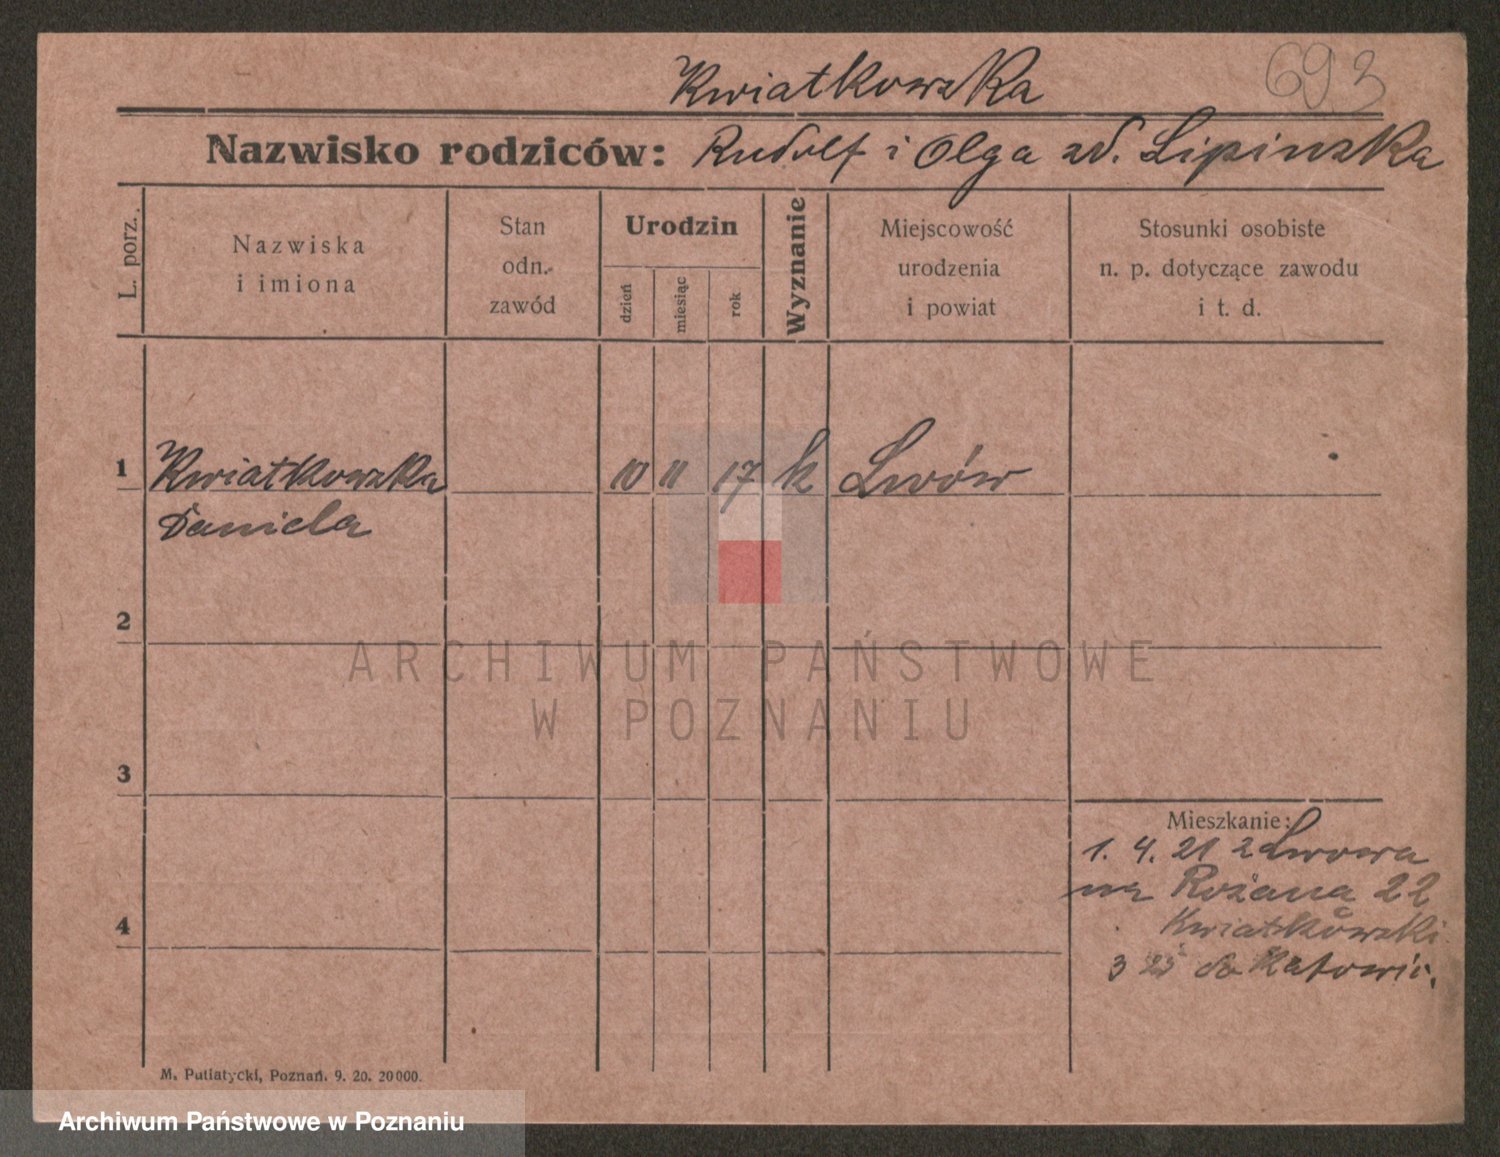 693
Kwiatkowska
Nazwisko rodziców: Rudolf i Olga zd. Lipinska
L. porz.
Nazwiska
i imiona
Stan
odn.
zawód
Urodzin
dzień
miesiąc
rok
Wyznanie
Miejscowość
urodzenia
i powiat
Stosunki osobiste
n. p. dotyczące zawodu
i t. d.
1 Kwiatkowska 10 11 17 k Lwów
Daniela
2
ARCHIWUM PAŃSTWOWE
W POZNANIU
3
Mieszkanie:
1. 4. 21 z Lwowa
na Różana 22
4
Kwiatkowski
3 25 do Katowic.
M. Putiatycki, Poznań. 9. 20. 20000.
Archiwum Państwowe w Poznaniu